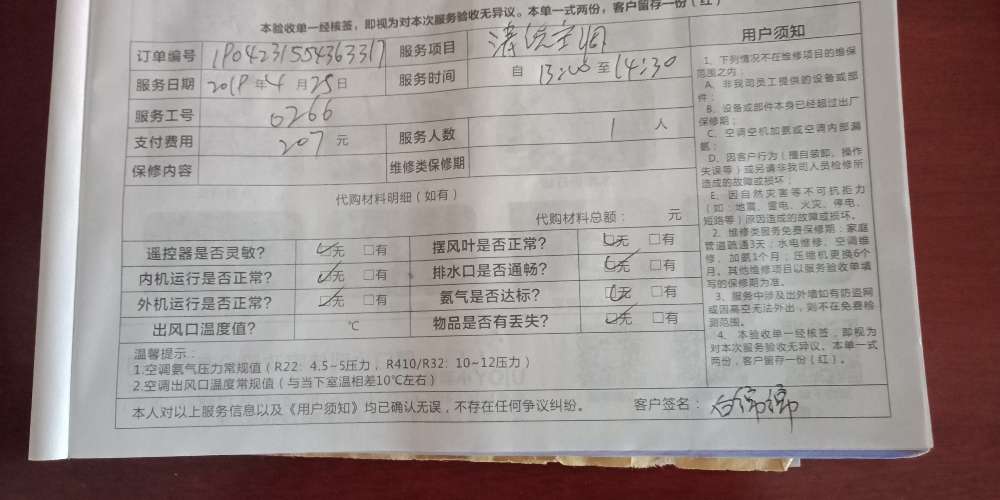 本验收单一经核签，即视为对本次服务验收无异议。本单一式两份，客户留存一份（红）
订单编号 1P04231554363317 服务项目 清洗空调
服务日期 2018年4月25日 服务时间 自 13:00 至 14:30
服务工号 0266
支付费用 207 元 服务人数 1 人
保修内容 维修类保修期
代购材料明细（如有）
代购材料总额： 元
遥控器是否灵敏？ ☑无 □有 摆风叶是否正常？ ☑无 □有
内机运行是否正常？ ☑无 □有 排水口是否通畅？ ☑无 □有
外机运行是否正常？ ☑无 □有 氨气是否达标？ ☑无 □有
出风口温度值？ ℃ 物品是否有丢失？ ☑无 □有
温馨提示：
1.空调氨气压力常规值（R22：4.5~5压力，R410/R32：10~12压力）
2.空调出风口温度常规值（与当下室温相差10℃左右）
本人对以上服务信息以及《用户须知》均已确认无误，不存在任何争议纠纷。 客户签名：
用户须知
1、下列情况不在维修项目的维保
范围之内：
A、非我司员工提供的设备或部
件；
B、设备或部件本身已经超过出厂
保修期；
C、空调空机加氨或空调内部漏
氨；
D、因客户行为（擅自装卸、操作
失误等）或另请非我司人员检修所
造成的故障或损坏；
E、因自然灾害等不可抗拒力
（如：地震、雷电、火灾、停电、
短路等）原因造成的故障或损坏。
2、维修类服务免费保修期：家庭
管道疏通3天；水电维修、空调维
修、加氨1个月；压缩机更换6个
月。其他维修项目以服务验收单填
写的保修期为准。
3、服务中涉及出外墙如有防盗网
或因高空无法外出，则不在免费检
测范围。
4、本验收单一经核签，即视为
对本次服务验收无异议。本单一式
两份，客户留存一份（红）。